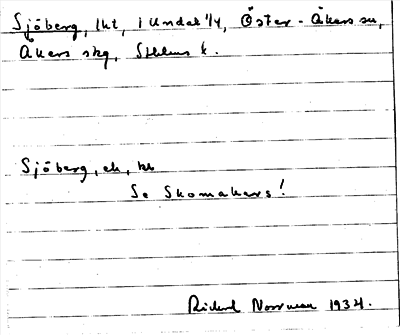 Sjöberg, lht, i Undal 1/4, Öster-Åkers sn,
Åkers skg, Sthlms k.
Sjöberg, eh, hb
Se Skomakars!
Rickard Norrman 1934.